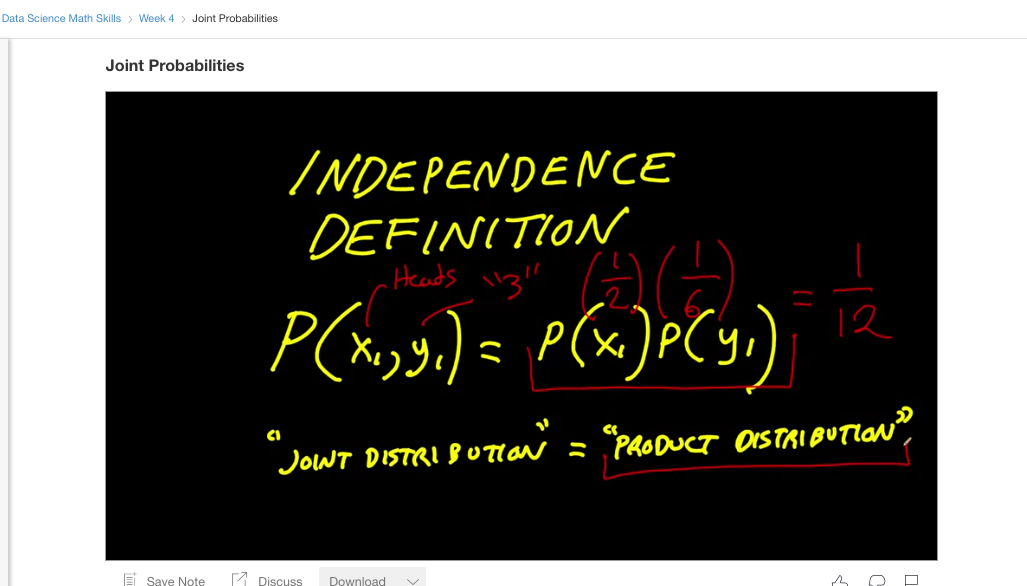 Data Science Math Skills > Week 4 > Joint Probabilities
Joint Probabilities
INDEPENDENCE
DEFINITION
Heads "3" (1/2) (1/6) = 1/12
P(x₁, y₁) = P(x₁) P(y₁)
"JOINT DISTRIBUTION" = "PRODUCT DISTRIBUTION"
Save Note Discuss Download